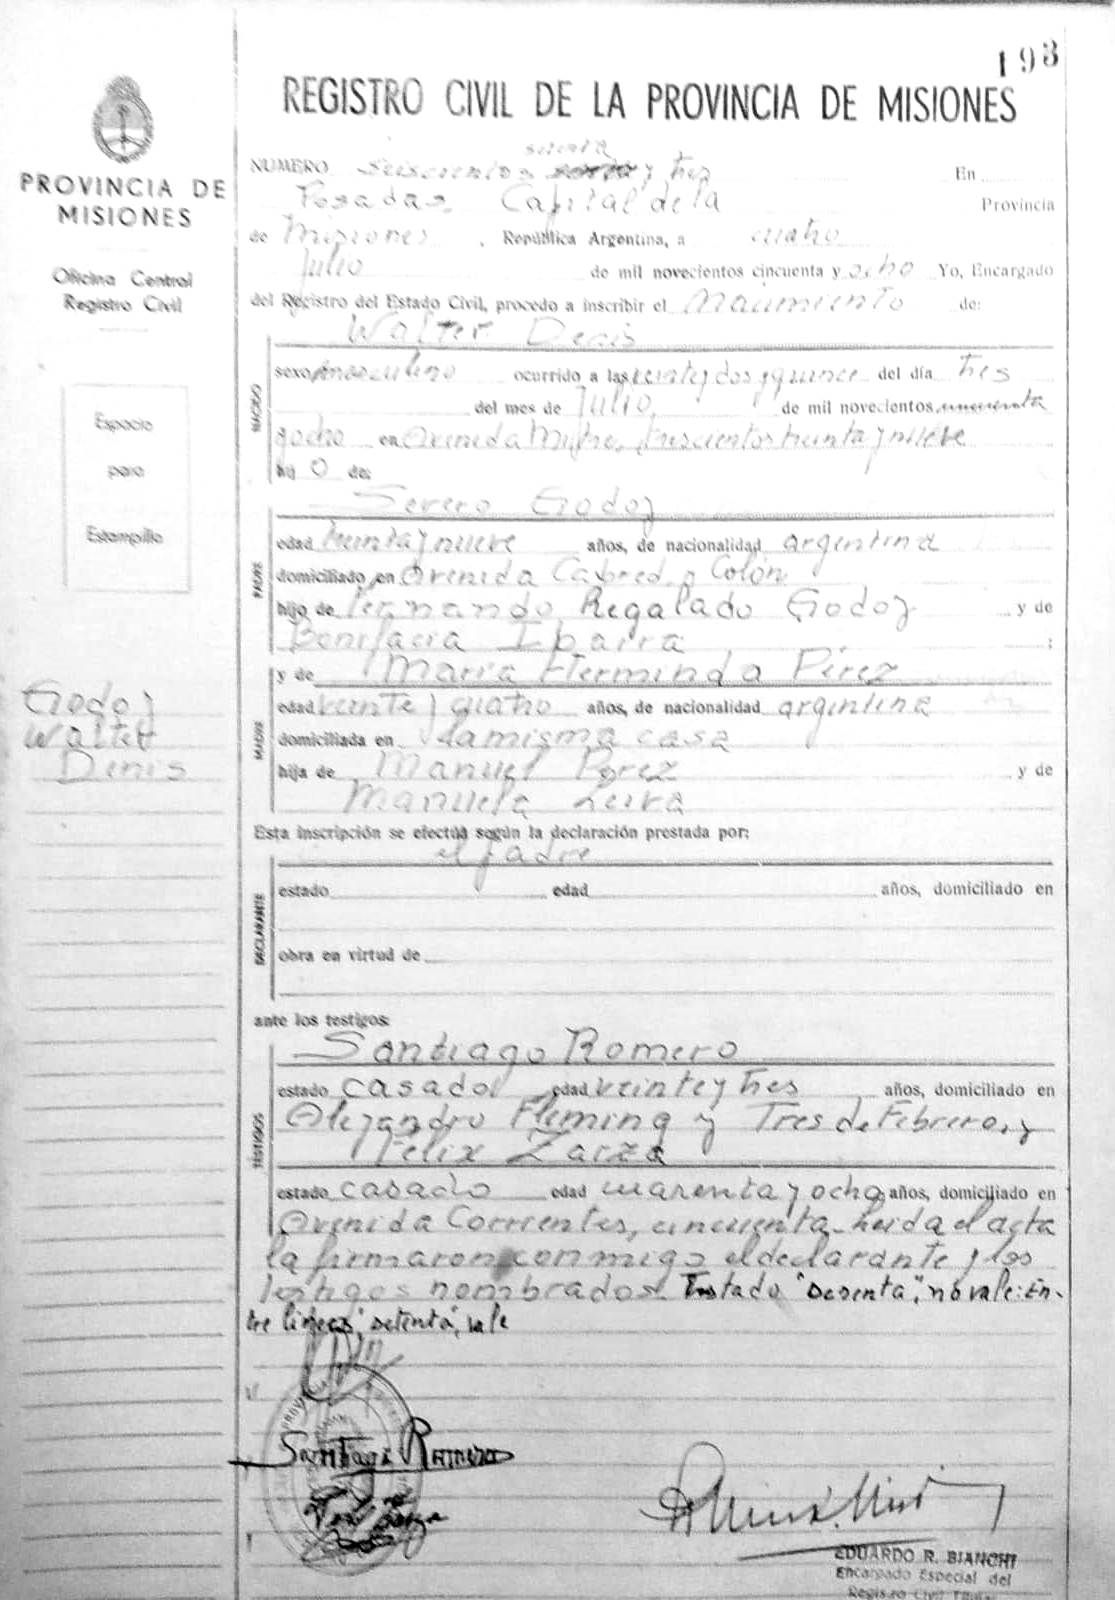 193
REGISTRO CIVIL DE LA PROVINCIA DE MISIONES
PROVINCIA DE
MISIONES
Oficina Central
Registro Civil
Espacio
para
Estampilla
Godoy
Walter
Denis
setenta
NUMERO Seiscientos y tres En
Posadas Capital de la Provincia
de Misiones, República Argentina, a cuatro
Julio de mil novecientos cincuenta y ocho Yo, Encargado
del Registro del Estado Civil, procedo a inscribir el Nacimiento de:
Walter Denis
NACIDO
sexo masculino ocurrido a las veinte y dos y quince del día tres
del mes de Julio, de mil novecientos cincuenta
y ocho en Avenida Mitre, trescientos treinta y nueve
hij o de:
Severo Godoy
PADRE
edad treinta y nueve años, de nacionalidad argentina
domiciliado en Avenida Cabred y Colón
hijo de Fernando Regalado Godoy y de
Bonifacia Ibarra ;
y de María Herminda Pérez
MADRE
edad veinte y cuatro años, de nacionalidad argentina
domiciliada en la misma casa
hija de Manuel Perez y de
Manuela Leiva
Esta inscripción se efectúa según la declaración prestada por:
el padre
DECLARANTE
estado edad años, domiciliado en
obra en virtud de
ante los testigos:
Santiago Romero
TESTIGOS
estado casado edad veinte y tres años, domiciliado en
Alejandro Fleming y Tres de Febrero, y
Félix Zarza
estado casado edad cuarenta y ocho años, domiciliado en
Avenida Corrientes, cincuenta. Leida el acta
la firmaron conmigo el declarante y los
testigos nombrados. Testado "sesenta", no vale: En-
tre lineas "setenta", vale
Santiago Romero
EDUARDO R. BIANCHI
Encargado Especial del
Registro Civil